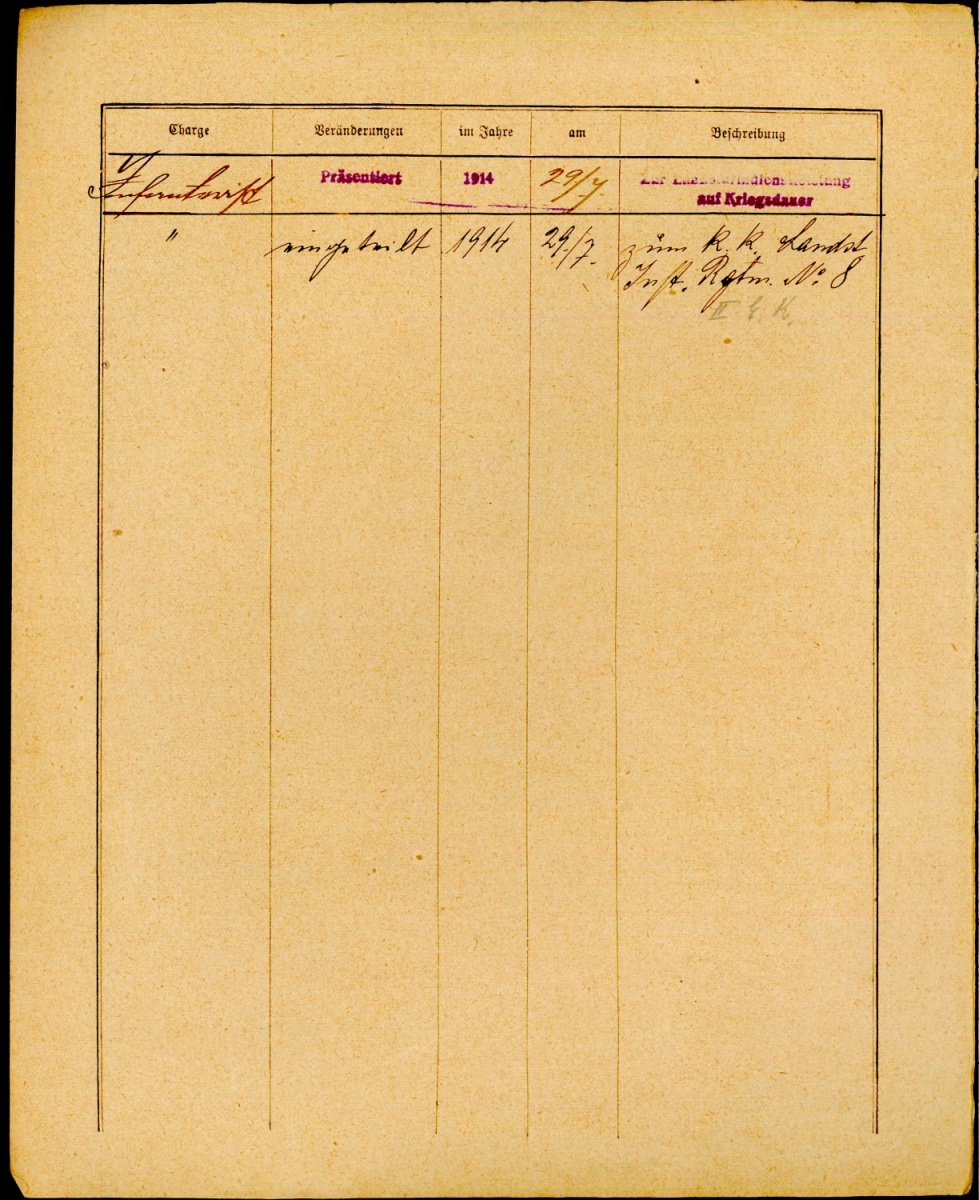 Charge Veränderungen im Jahre am Beschreibung
Infanterist Präsentiert 1914 29/7 Zur Landsturmdienstleistung
auf Kriegsdauer
" eingeteilt 1914 29./7. zum k. k. Landst.
Inft. Rgtm. No 8
II. E. K.